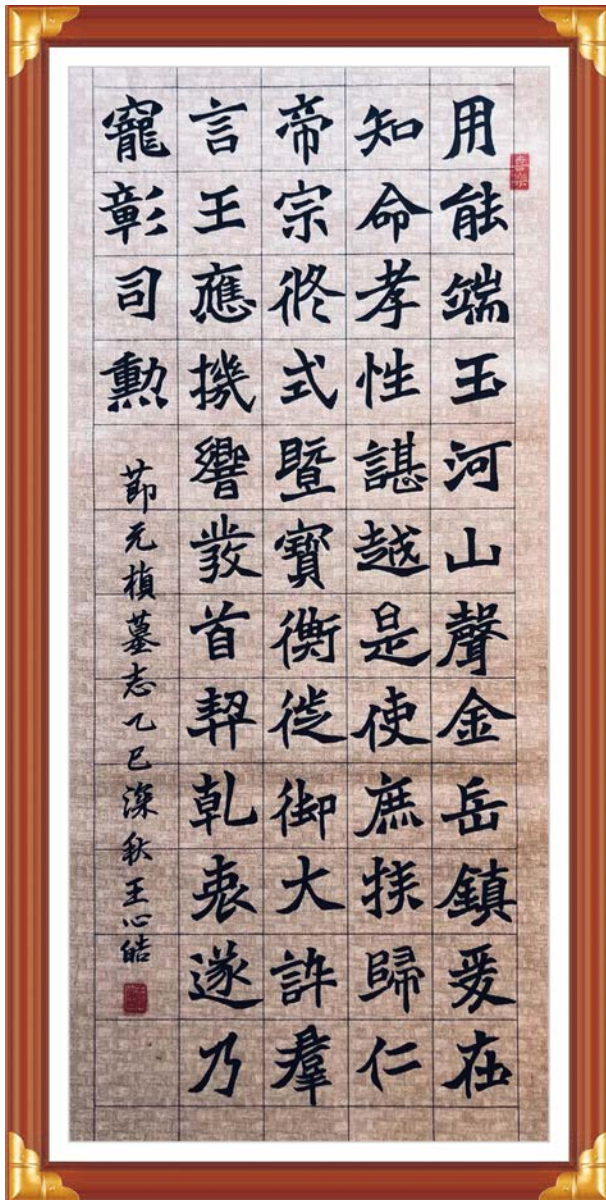 用能端玉河山聲金岳鎮爰在
知命孝性諶越是使庶族歸仁
帝宗攸式暨寶衡徙御大許羣
言王應機響發首契乾衷遂乃
寵彰司勲
節元楨墓志乙巳深秋王心皓